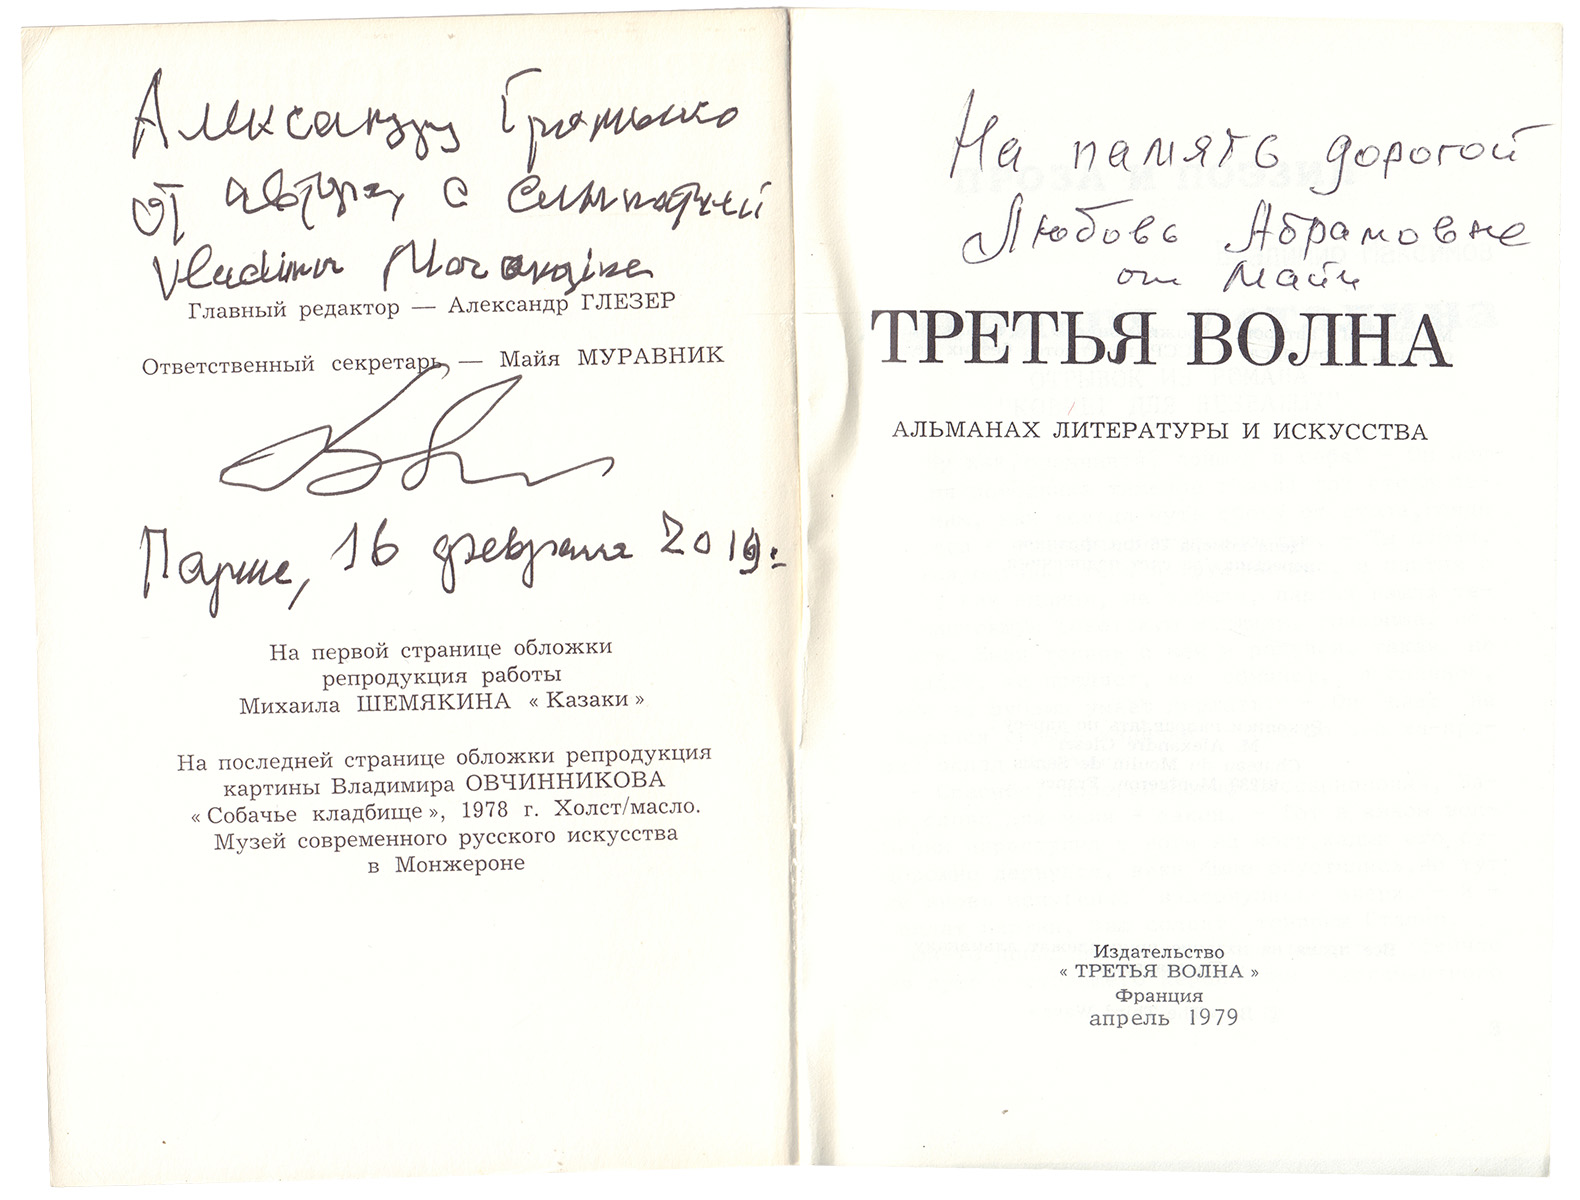 Александру Громыко
от автора, с симпатией
Vladimir
Главный редактор — Александр ГЛЕЗЕР
Ответственный секретарь — Майя МУРАВНИК
Париж, 16 февраля 2019г.
На первой странице обложки
репродукция работы
Михаила ШЕМЯКИНА « Казаки »
На последней странице обложки репродукция
картины Владимира ОВЧИННИКОВА
« Собачье кладбище », 1978 г. Холст/масло.
Музей современного русского искусства
в Монжероне
На память дорогой
Любовь Абрамовне
от Майи
ТРЕТЬЯ ВОЛНА
АЛЬМАНАХ ЛИТЕРАТУРЫ И ИСКУССТВА
Издательство
« ТРЕТЬЯ ВОЛНА »
Франция
апрель 1979